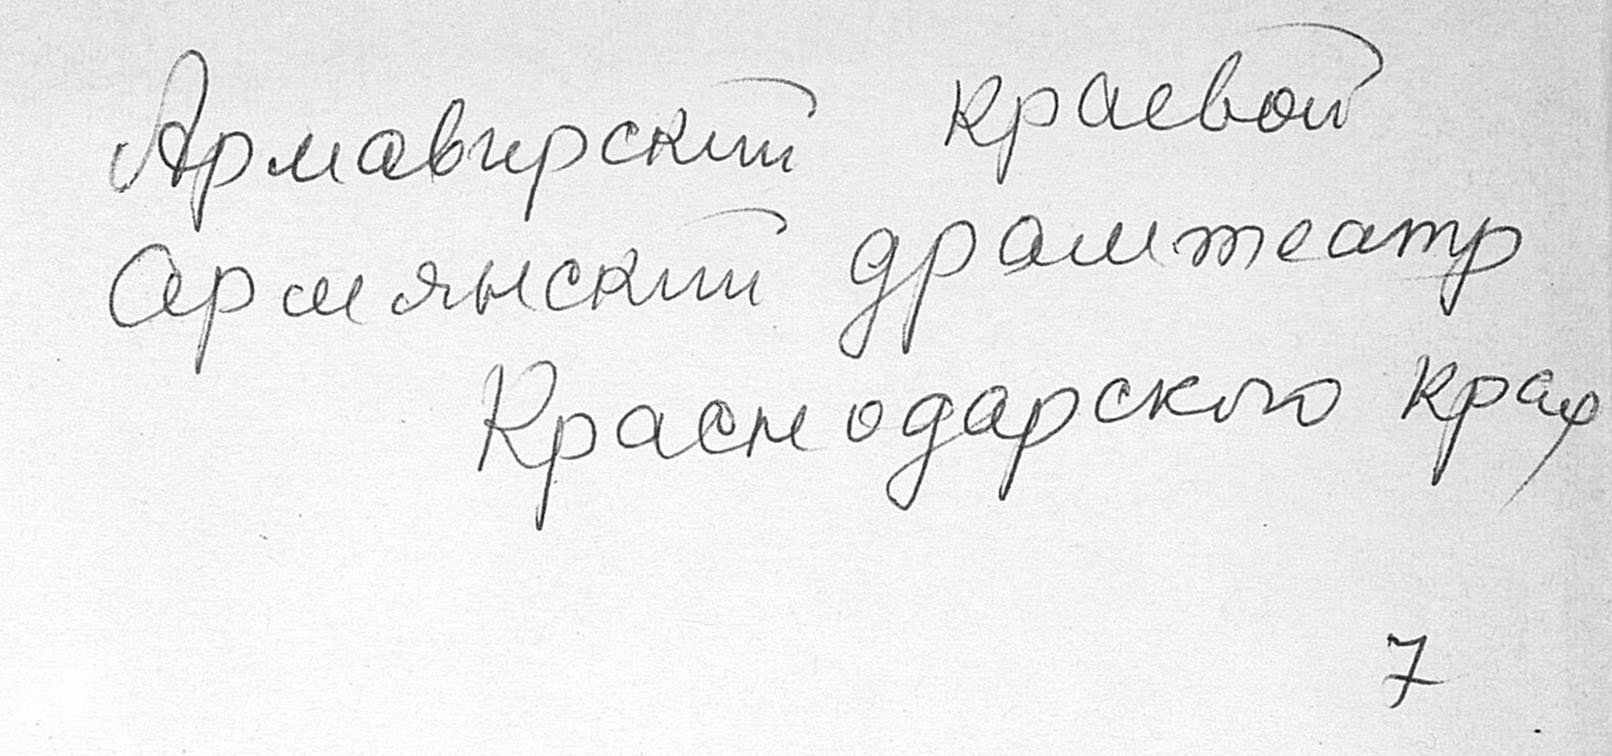 Армавирский краевой
Армянский драмтеатр
Краснодарского края
7